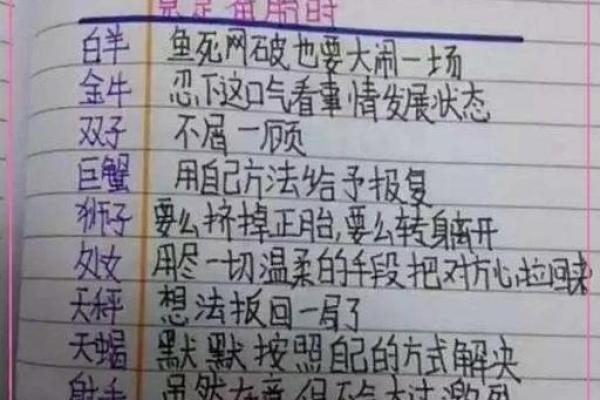 竟是备胎时
白羊 鱼死网破也要大闹一场
金牛 忍下这口气看事情发展状态
双子 不屑一顾
巨蟹 用自己方法给予报复
狮子 要么挤掉正胎,要么转身离开
处女 用尽一切温柔的手段把对方心拉回来
天秤 想法扳回一局了
天蝎 默默按照自己的方式解决
射手 虽然在意,但不会太过激烈